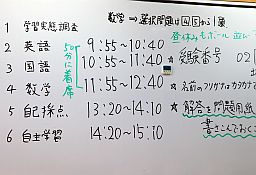 1 学習実態調査
数学 ⇒ 選択問題は
から1題
2 英語 9:55~10:40
昼休みもボール
3 国語 10:55~11:40
☆受験番号 021
50分に着席
4 数学 11:55~12:40
☆名前のフリガナはカタカナで
5 自己採点 13:20~14:10
☆解答を問題用紙
6 自主学習 14:20~15:10
書きこんでおく